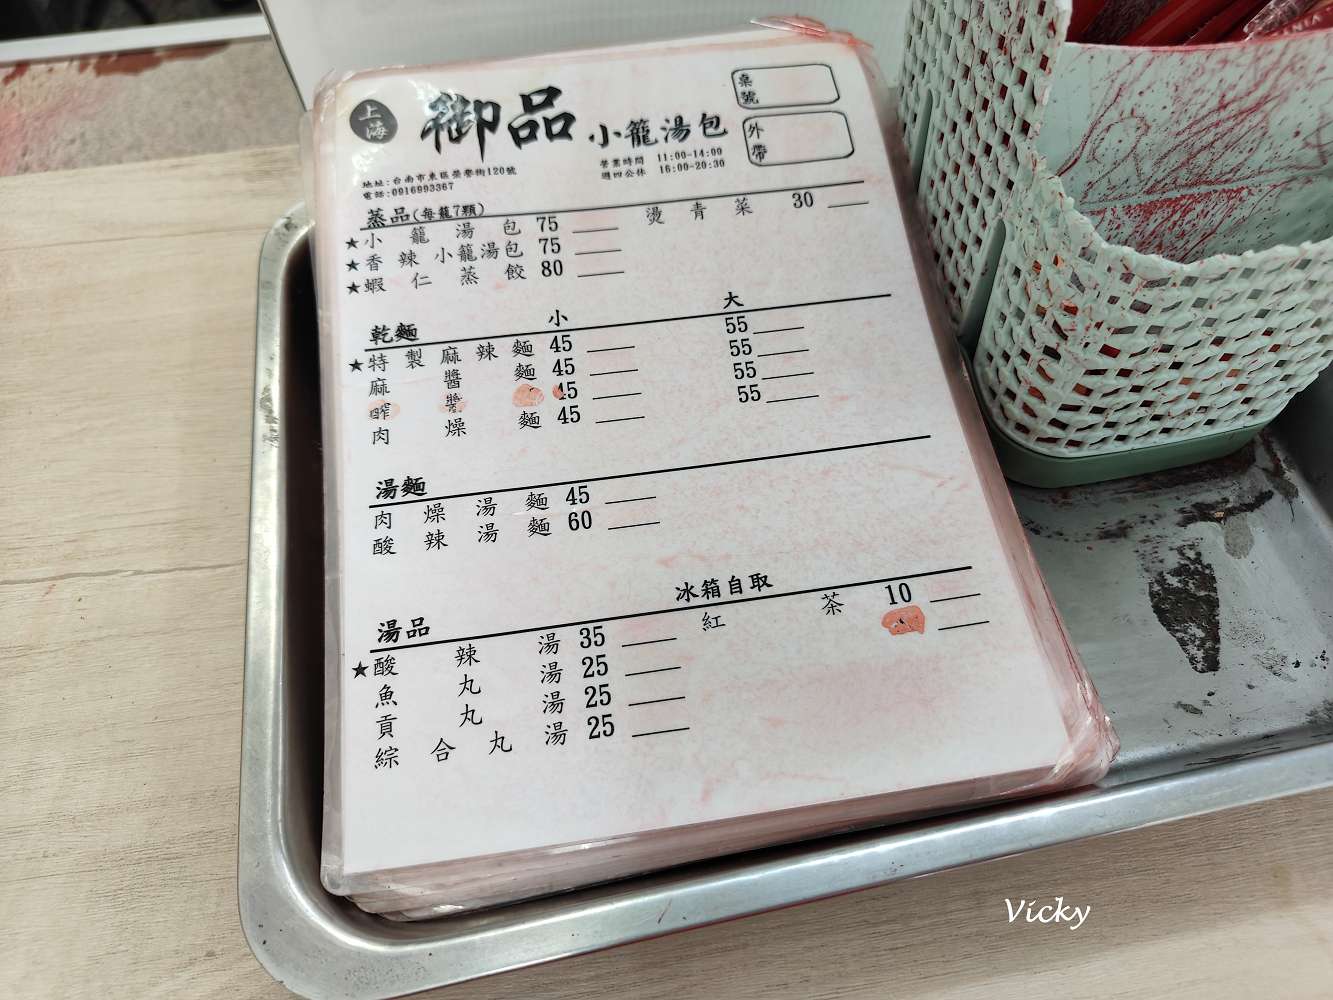 上海
御品 小籠湯包
桌號
外帶
營業時間 11:00-14:00
週四公休 16:00-20:30
地址:台南市東區榮譽街120號
電話:0916993367
蒸品(每籠7顆)
★小籠湯包 75
燙青菜 30
★香辣小籠湯包 75
★蝦仁蒸餃 80
乾麵 小 大
★特製麻辣麵 45 55
麻醬麵 45 55
醬 45 55
肉燥麵 45 55
湯麵
肉燥湯麵 45
酸辣湯麵 60
湯品
冰箱自取
★酸辣湯 35
紅茶 10
魚丸湯 25
貢丸湯 25
綜合丸湯 25
Vicky